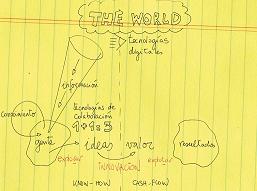 THE WORLD
tecnologías
digitales
información
tecnologías de
colaboración
1+1=3
conocimiento
gente
ideas
valor
resultados
explorar
explotar
INNOVACIÓN
KNOW-HOW
CASH-FLOW